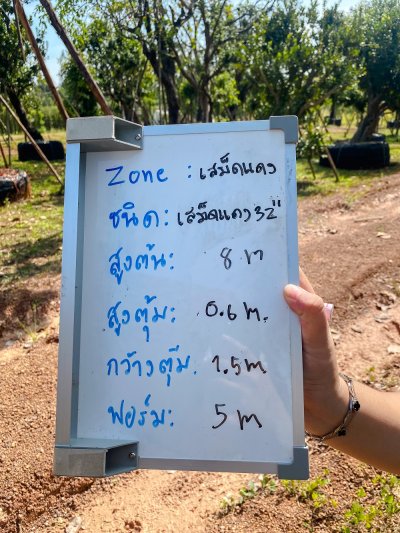 Zone : เสม็ดแดง
ชนิด: เสม็ดแดง 32"
สูงต้น: 8 m
สูงตุ้ม: 0.6 m.
กว้างตุ้ม. 1.5 m
ฟอร์ม: 5 m